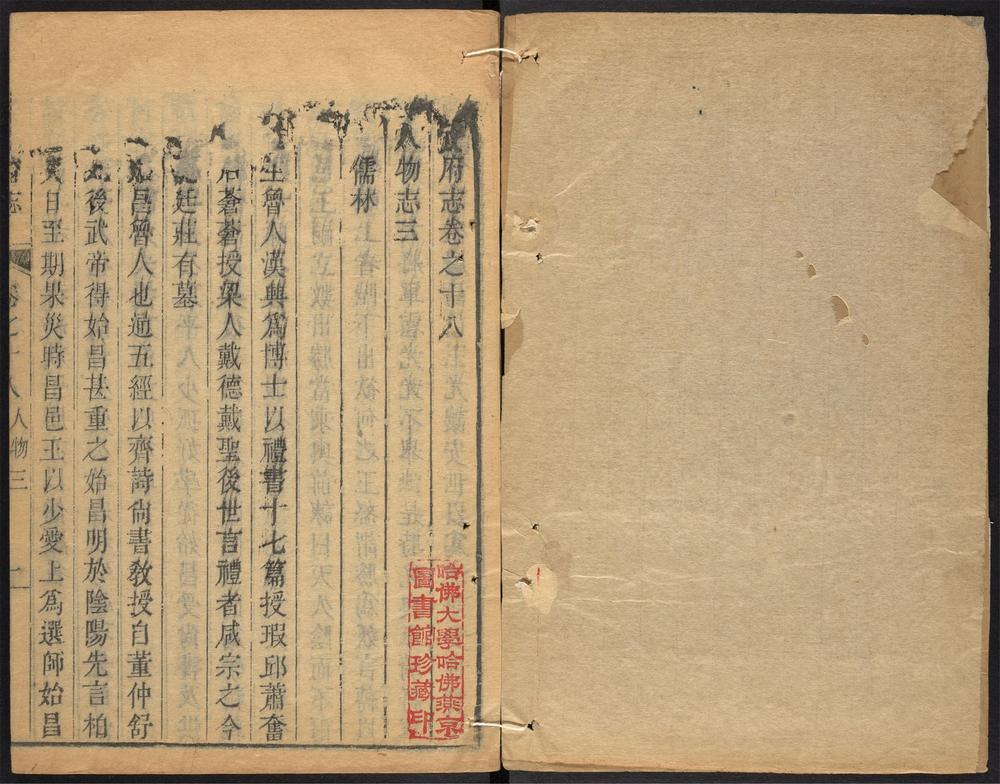 府志卷之十八
人物志三
儒林
生魯人漢興爲博士以禮書十七篇授瑕邱蕭奮
后蒼蒼授梁人戴德戴聖後世言禮者咸宗之今
廷莊有墓
昌魯人也通五經以齊詩尙書敎授自董仲舒
後武帝得始昌甚重之始昌明於陰陽先言柏
日至期果災時昌邑王以少愛上爲選師始昌
志
卷之十八人物三
一
哈佛大學哈佛燕京
圖書館珍藏印